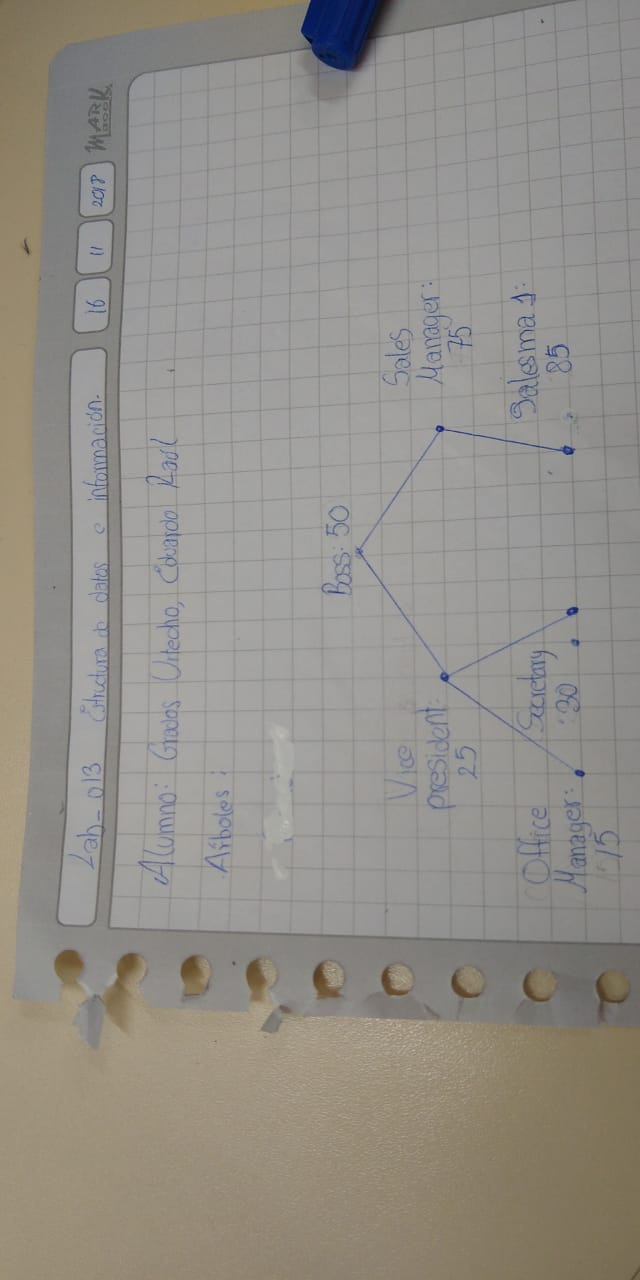 Lab_013 Estructura de datos e información.
16 11 2018
MARK
BOOK
Alumno: Grados Urtecho, Eduardo Raúl
Árboles:
Boss: 50
Vice
president:
25
Sales
Manager:
75
Office
Manager:
15
Secretary
30
Salesma 1:
85